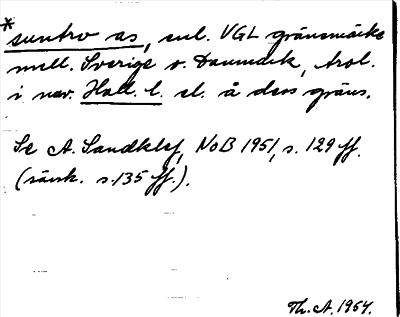 *suntro as, enl. VGL gränsmärke
mell. Sverige o. Danmark, trol.
i nuv. Hall. l. el. å dess gräns.
Se A. Sandklef, NoB 1951, s. 129 ff.
(särsk. s. 135 ff.).
Th. A. 1954.